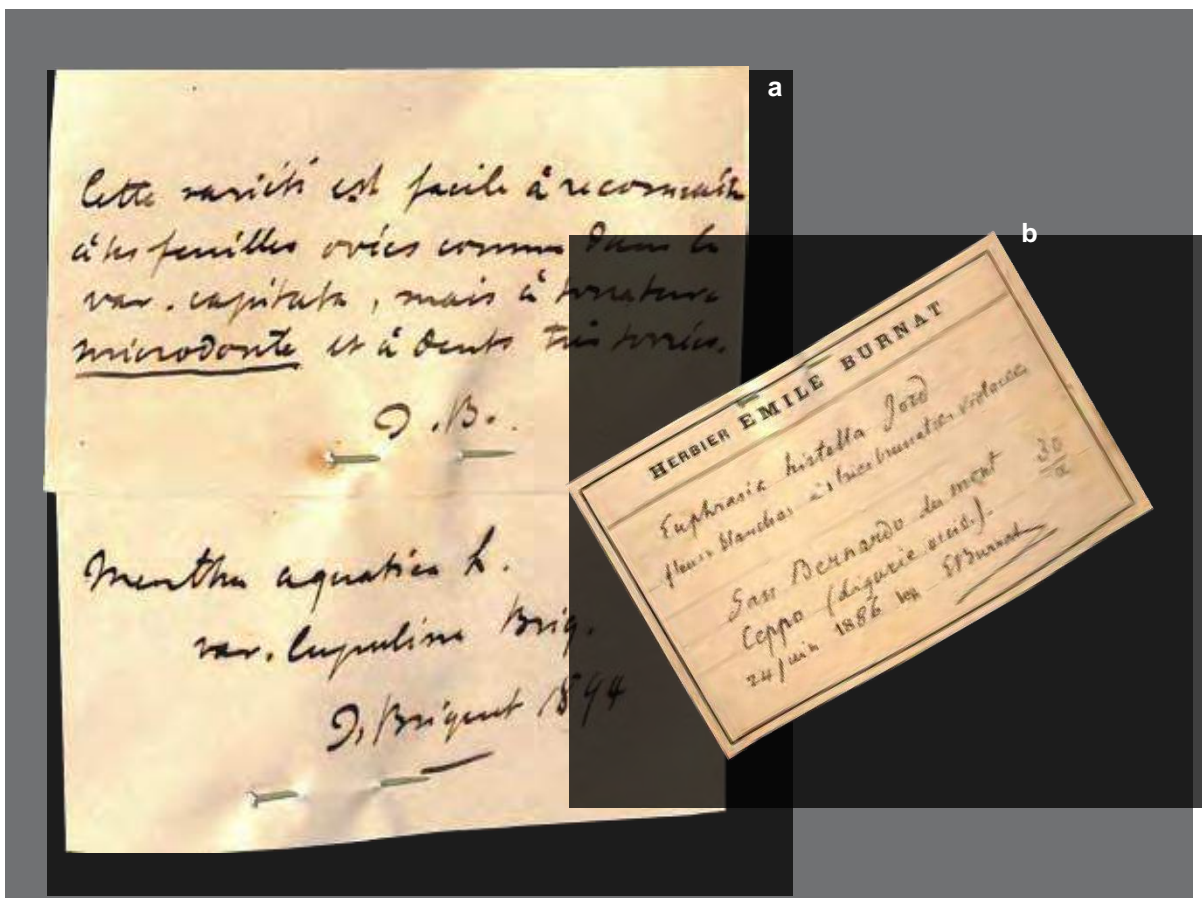 a
Cette variété est facile à reconnaître
à ses feuilles ovées comme dans la
var. capitata, mais à serrature
microdonte et à dents très serrées.
J. B.
Mentha aquatica L.
var. lupulina Briq.
J. Briquet 1894
b
HERBIER EMILE BURNAT
Euphrasia hirtella Jord
fleurs blanches à stries violacées
San Bernardo du mont
Ceppo (Ligurie occid.).
24 juin 1886 leg EBurnat
30
a